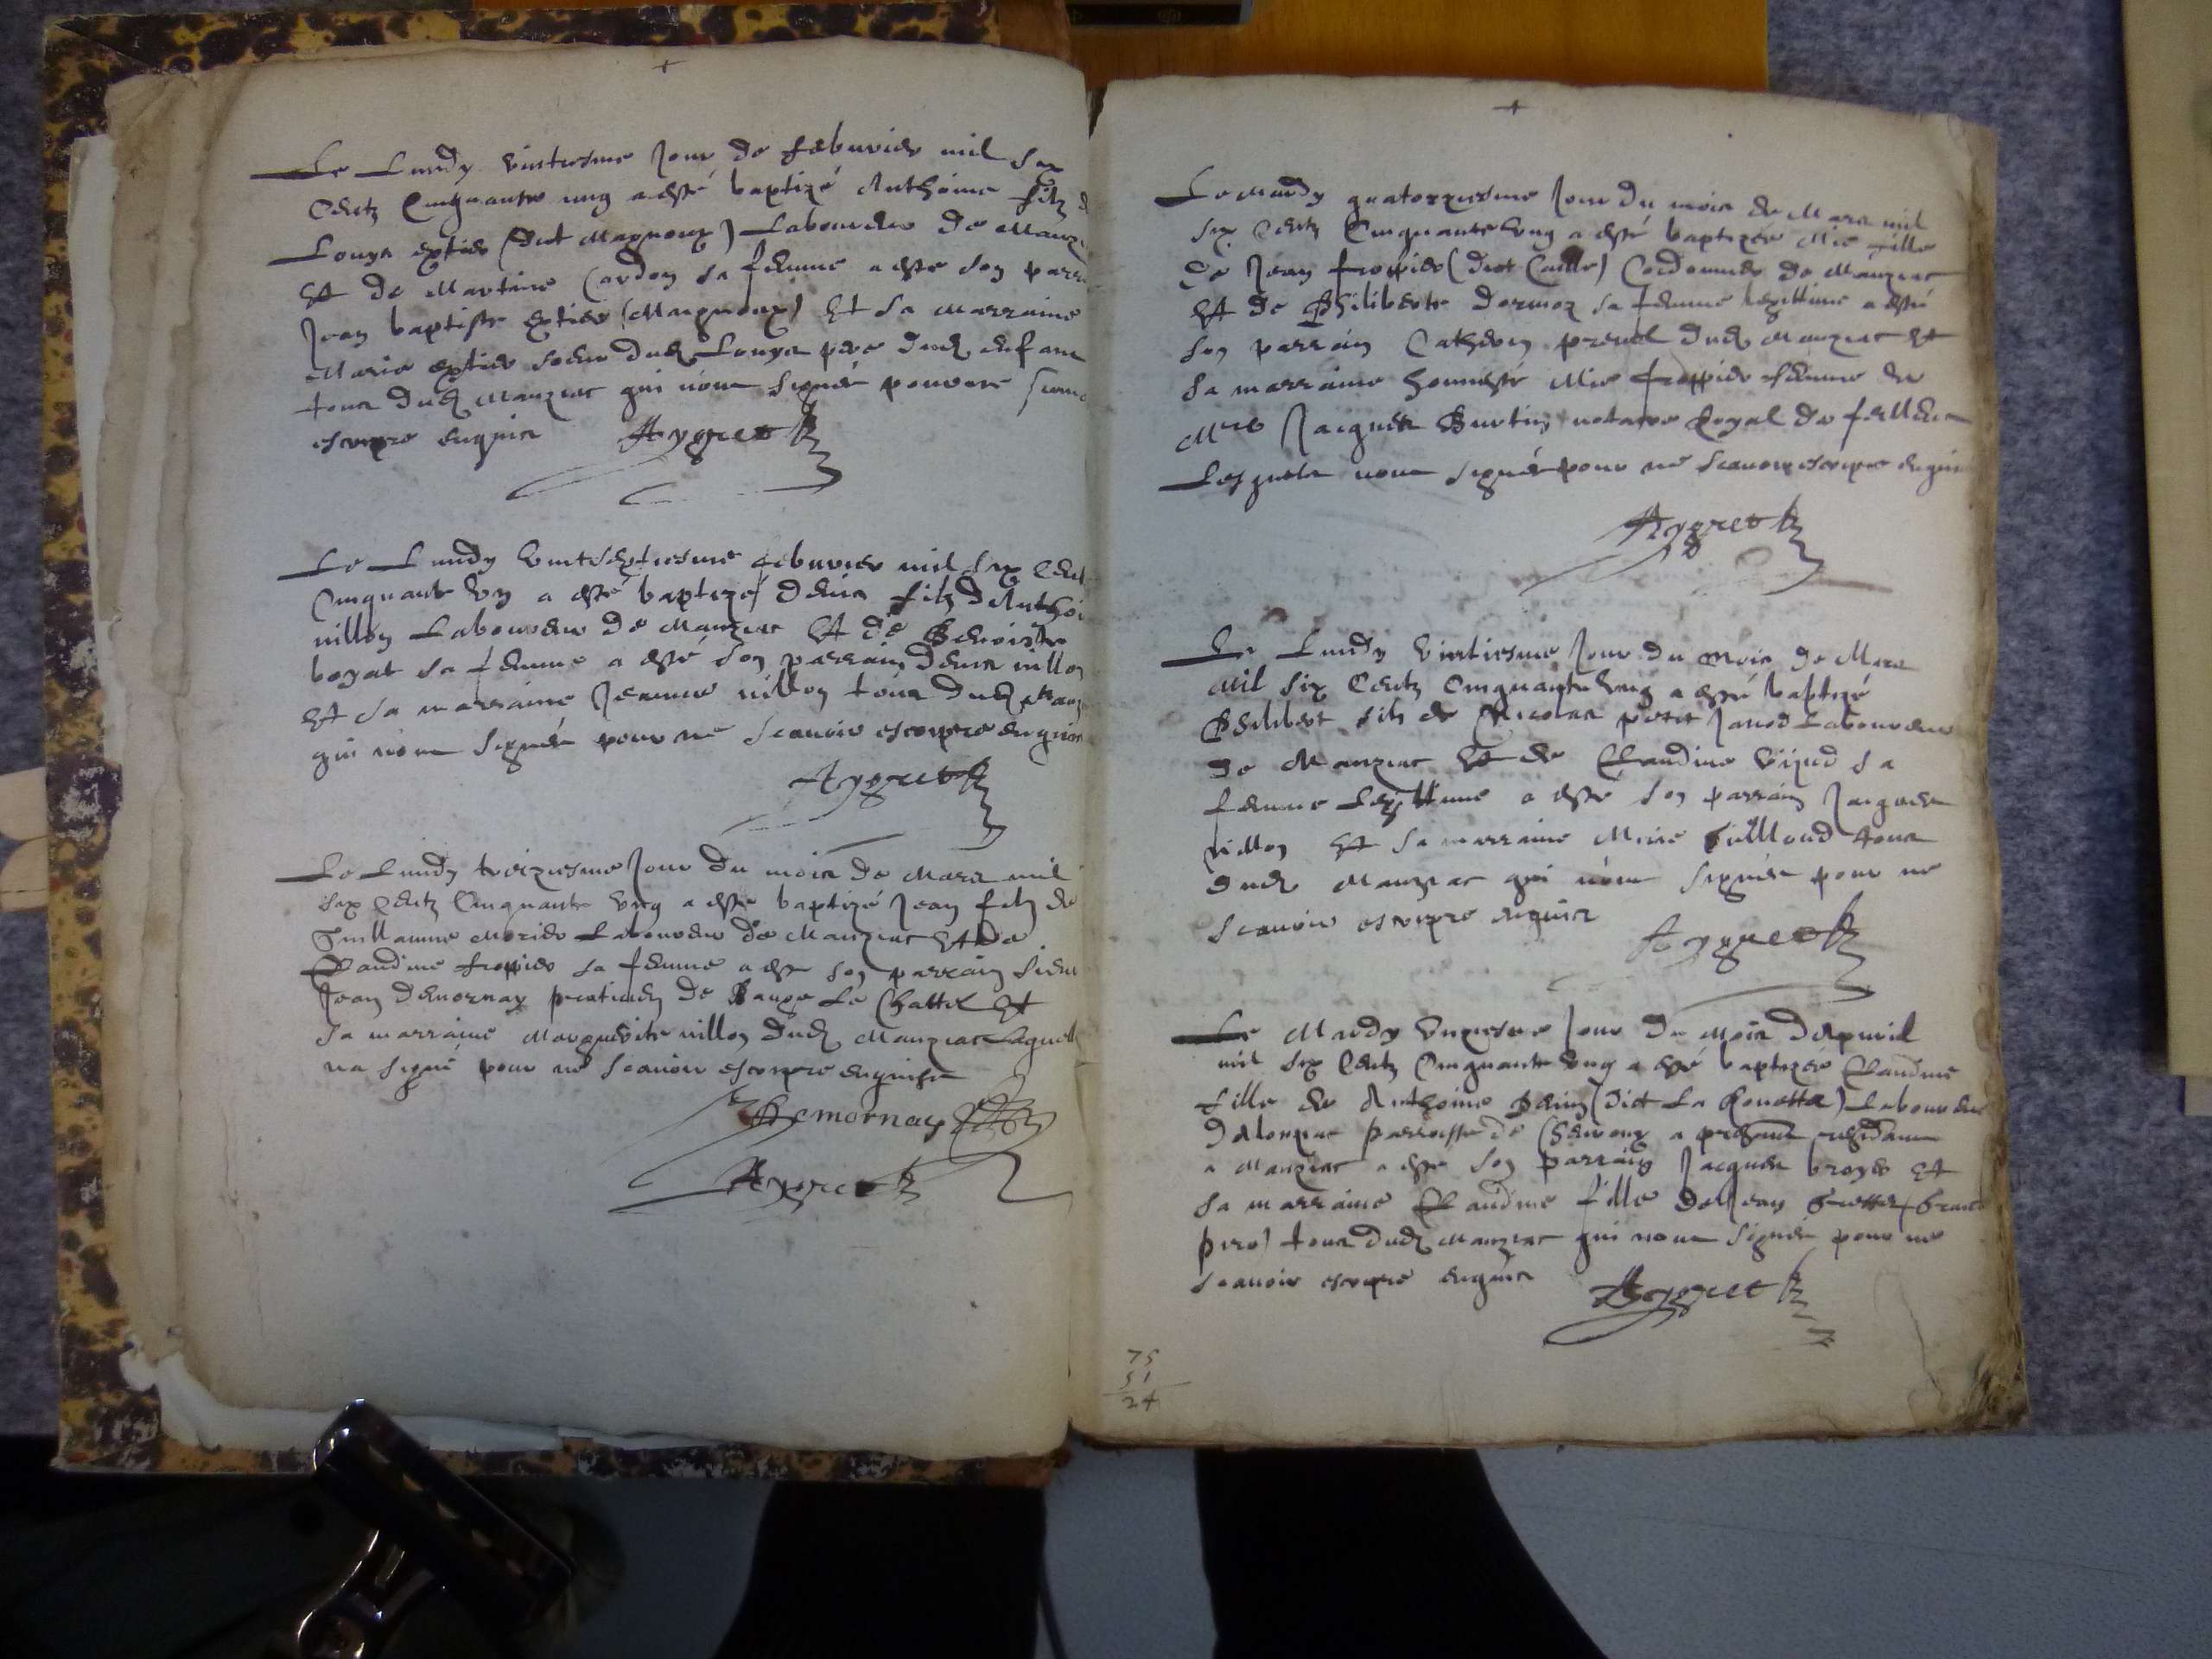 Le Lundy vintiesme Jour de febvrier mil six
Centz Cinquante ung a esté baptizé Anthoine filz d
Louys extier (dict Magnoux) Laboureur de Manz
Et de Martine Cardon sa femme a esté son parr
Jean baptiste Extier (Magnoux) Et sa marraine
Marie extier soeur dud. Louys pere dud. enfant
tous dud. Manziat qui nont signés pour ne
escripre enquis Aygret
Le Lundy vintseptiesme febvrier mil six Cent
Cinquante vng a esté baptizé Denis filz dAnthoi
villon Laboureur de Manziat Et de Benoiste
boyat sa femme a esté son parrain Denis villon
Et sa marraine Jeanne villon tous dud. Manz
qui nont signés pour ne scavoir escripre enquis
Aygret
Le Lundy treiziesme Jour du mois de Mars mil
six Centz Cinquante vng a esté baptizé Jean filz de
Guillaume Morier Laboureur de Manziat Et de
Claudine froppier sa femme a esté son parrain sieur
Jean Demornay praticien de Bauge Le Chattel Et
sa marraine Marguerite villon dud. Manziat Laquelle
na signé pour ne scavoir escripre enquise
Demornay
Aygret
Le Mardy quatorziesme Jour du mois de Mars mil
six Centz Cinquante vng a esté baptizée Mie fille
de Jean froppier (dict Caille) Cordonnier de Manziat
Et de Philiberte Dormoz sa femme legittime a esté
son parrain Catherin prevel dud. Manziat Et
sa marraine honneste Mie froppier femme de
Mre Jacques Burtin notaire Royal de feillens
Lesquels nont signés pour ne scavoir escripre enquis
Aygret
Le Lundy vintiesme Jour du mois de Mars
Mil six Centz Cinquante vng a esté baptizé
Philibert filz de Nicolas petit Janod Laboureur
de Manziat Et de Claudine
sa
femme Legittime a esté son parrain Jacques
villon Et sa marraine Mie tous
dud. Manziat qui nont signés pour ne
scavoir escripre enquis Aygret
Le Mardy vnziesme Jour du mois dApvril
mil six Centz Cinquante vng a esté baptizée Claudine
fille de Anthoine (dict La Rousette) Laboureur
parroisse de Chevroux a present residant
a Manziat a esté son parrain Jacques broyer Et
sa marraine Claudine fille de Jean
tous dud. Manziat qui nont signés pour ne
scavoir escripre enquis Aygret
75
51
24